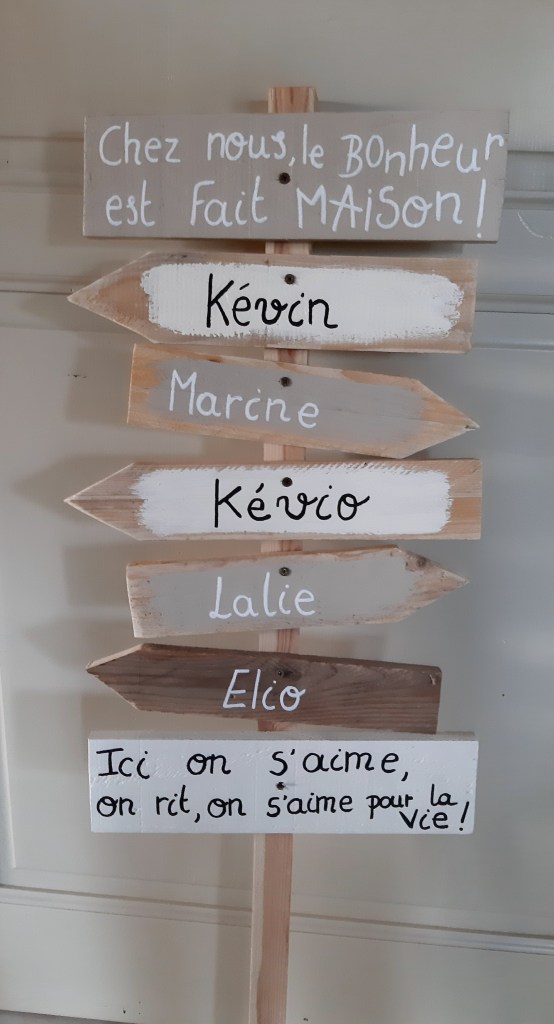 Chez nous, le BOnheur
est Fait MAiSOn !
Kévin
Marine
Kévio
Lalie
Elio
Ici on s'aime,
on rit, on s'aime pour la
vie !